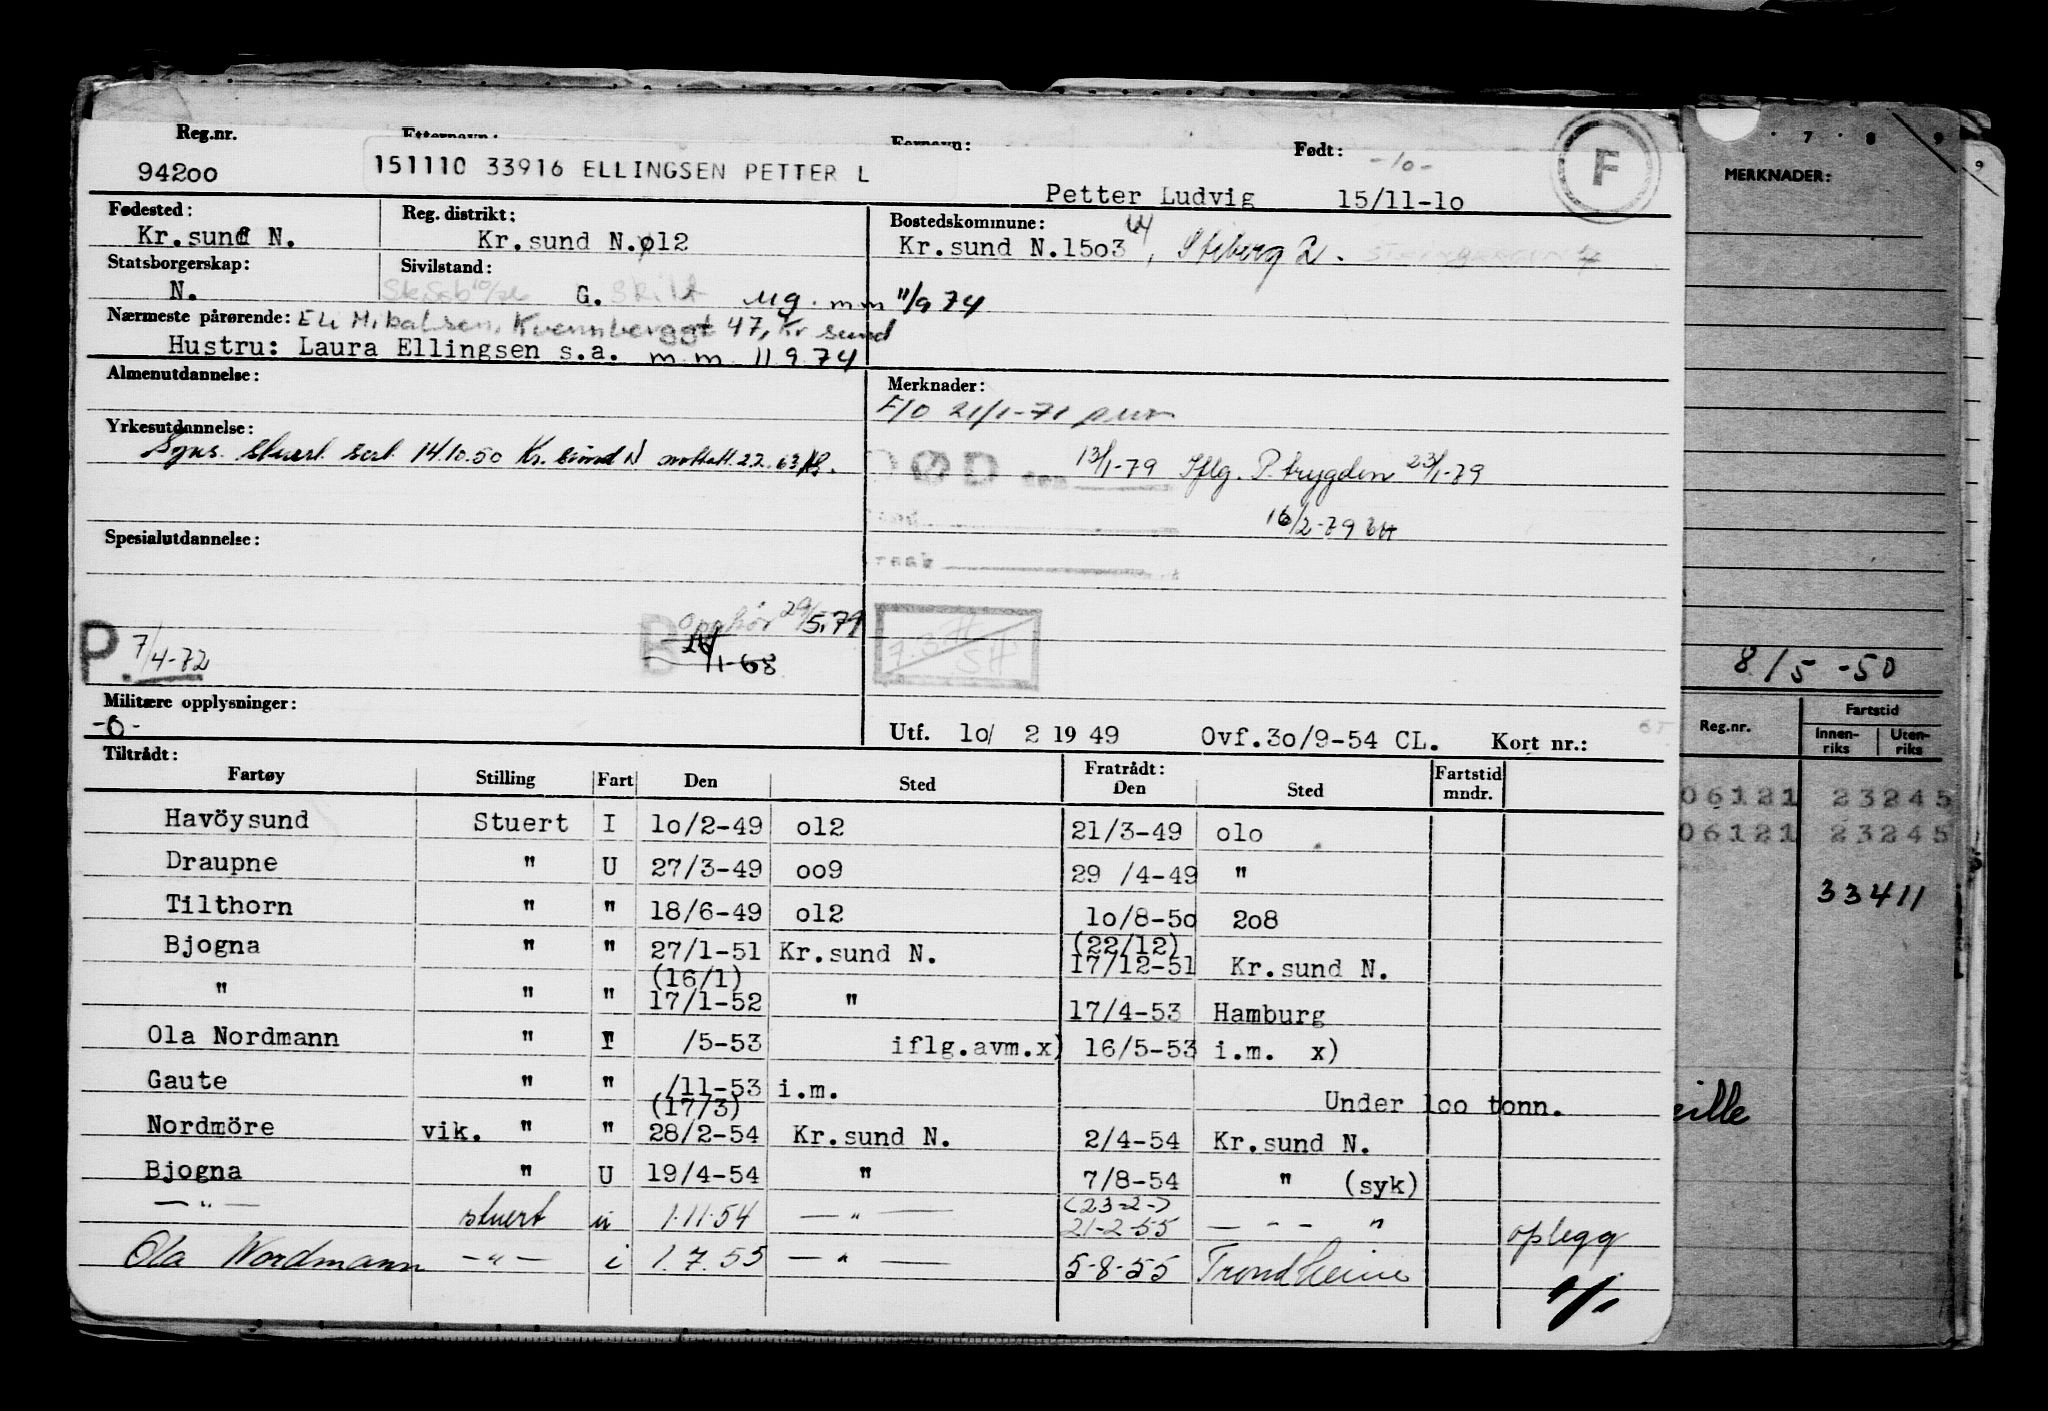 Reg.nr. Etternavn: Fornavn: Født: -10-
94200 151110 33916 ELLINGSEN PETTER L Petter Ludvig 15/11-1o F
Fødested: Reg. distrikt: Bostedskommune:
Kr.sund N. Kr.sund N. ø12 Kr.sund N.15o3
Statsborgerskap: Sivilstand:
N. G. Skilt ug. m.m 11/9 74
Nærmeste pårørende: Eli Mikalsen, Kvennberggt 47, Kr sund
Hustru: Laura Ellingsen s.a. m.m. 11 9 74
Almenutdannelse: Merknader:
F/O 21/1-71
Yrkesutdannelse:
stuert sert. 14.10.50 Kr. sund N mottatt 2.2.63
DØD den 13/1-79 Iflg. P.trygden 23/1-79
16/2-79
Spesialutdannelse:
P. 7/4-72 B Opphör 29/5.79
1-63
Militære opplysninger:
-0-
Utf. 1o/ 2 19 49 Ovf.3o/9-54 CL. Kort nr.:
Tiltrådt: Fratrådt:
Fartøy Stilling Fart Den Sted Den Sted Fartstid mndr.
Havöysund Stuert I 1o/2-49 o12 21/3-49 o1o
Draupne " U 27/3-49 oo9 29 /4-49 "
Tilthorn " " 18/6-49 o12 1o/8-5o 2o8
Bjogna " " 27/1-51 Kr.sund N. (22/12) 17/12-51 Kr.sund N.
" " " (16/1) 17/1-52 " 17/4-53 Hamburg
Ola Nordmann " I /5-53 iflg.avm.x) 16/5-53 i.m. x)
Gaute " " /11-53 i.m. Under 1oo tonn.
Nordmöre vik. " " (17/3) 28/2-54 Kr.sund N. 2/4-54 Kr.sund N.
Bjogna " U 19/4-54 " 7/8-54 " (syk)
— " — stuert u 1.11.54 — " — (23-2-) 21-2-55 — " — oplegg
Ola Nordmann — " — i 1.7.55 — " — 5-8-55 Trondheim
7 8 9
9
MERKNADER:
8/5-50
Reg.nr. Fartstid
Innen-riks Uten-riks
06121 23245
06121 23245
33411